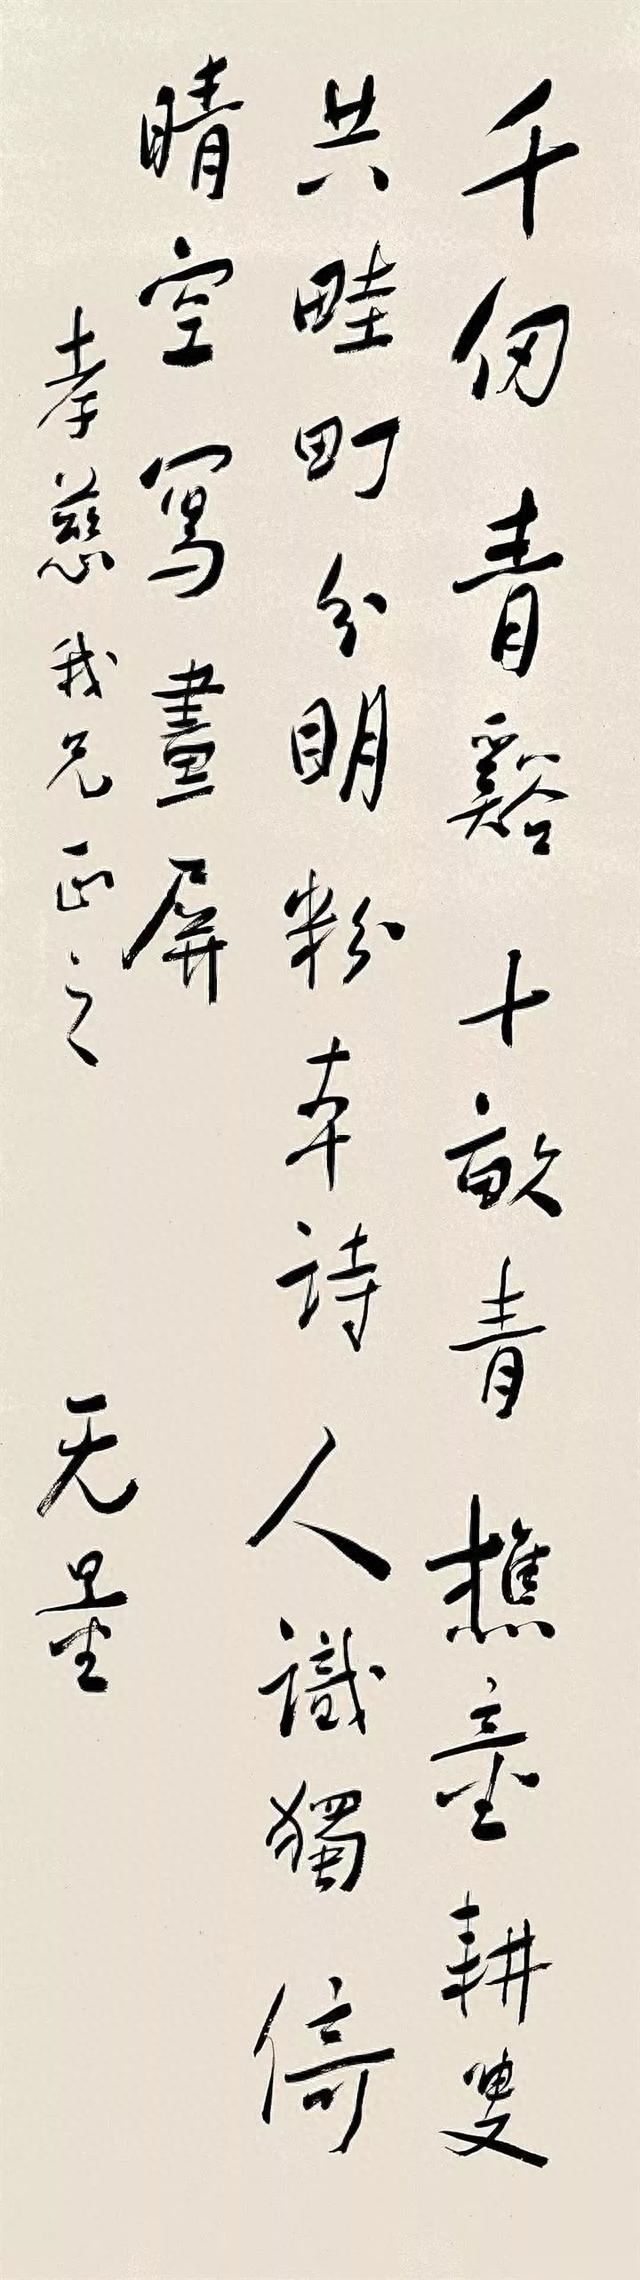 千仞青谿十畝青樵童耕叟
共畦町分明粉本詩人識獨倚
晴空寫畫屏
孝慈我兄正之 无量